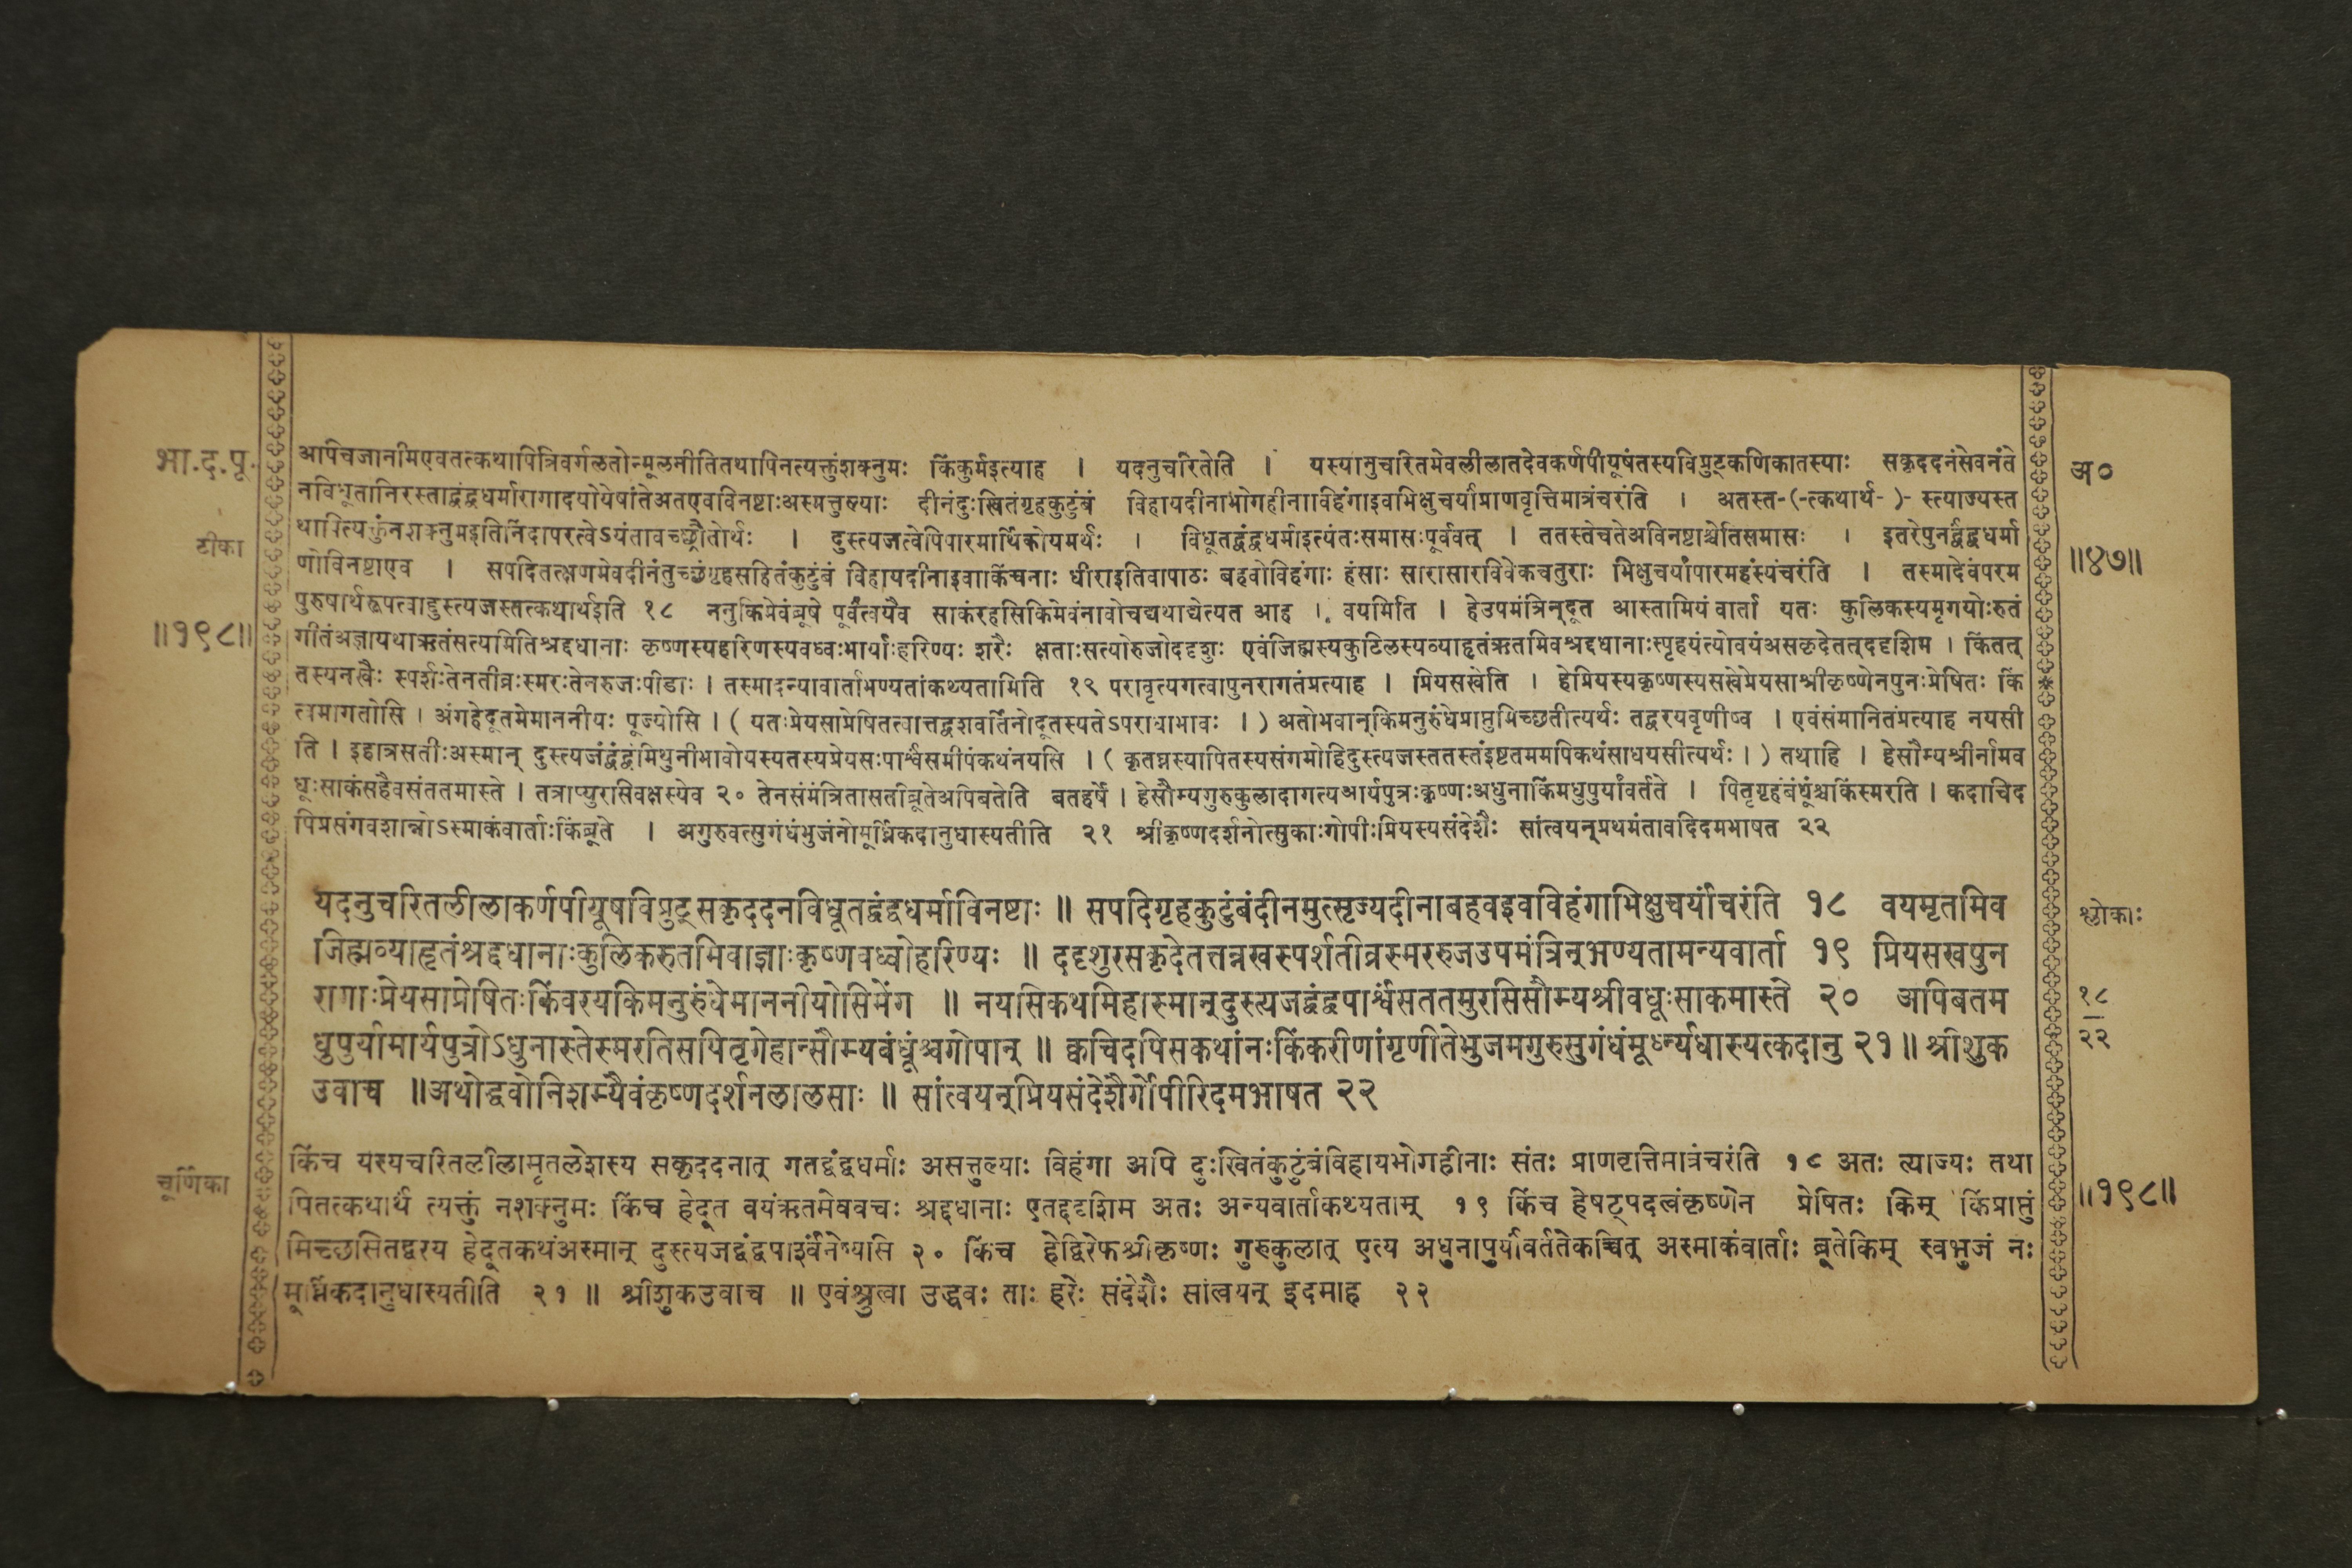 भा.द.पू.
टीका
॥१९८॥
अपिचजानीमएवतत्कथापित्रिवर्गलतोन्मूलनीतितथापिनत्यक्तुंशक्नुमः किंकुर्मइत्याह । यदनुचरितेति । यस्यानुचरितमेवलीलातदेवकर्णपीयूषंतस्यविप्रुट्कणिकातस्याः सकृददनंसेवनंते
नविधूतानिरस्ताद्वंद्वधर्मारागादयोयेषांतेअतएवविनष्टाःअसत्तुल्याः दीनंदुःखितंगृहकुटुंबं विहायदीनाभोगहीनाविहंगाइवभिक्षुचर्यांप्राणवृत्तिमात्रंचरंति । अतस्त-(-त्कथार्थ- )- स्त्याज्यस्त
थापित्यक्तुंनशक्नुमइतिनिंदापरत्वेऽयंतावच्छ्रौतोर्थः । दुस्त्यजत्वेपिपारमार्थिकोयमर्थः । विधूतद्वंद्वधर्माइत्यंतःसमासःपूर्ववत् । ततस्तेचतेअविनष्टाश्चेतिसमासः । इतरेपुनर्द्वंद्वधर्मा
णोविनष्टाएव । सपदितत्क्षणमेवदीनंतुच्छंगृहसहितंकुटुंबं विहायदीनाइवाकिंचनाः धीराइतिवापाठः बहवोविहंगाः हंसाः सारासारविवेकचतुराः भिक्षुचर्यांपारमहंस्यंचरंति । तस्मादेवंपरम
पुरुषार्थरूपत्वाद्दुस्त्यजस्तत्कथार्थइति १८ ननुकिमेवंब्रूषे पूर्वंत्वयैव साकंरहसिकिमेवंनावोचद्यथाद्येत्यत आह । वयमिति । हेउपमंत्रिन्दूत आस्तामियं वार्ता यतः कुलिकस्यमृगयोःरुतं
गीतंअज्ञायथाऋतंसत्यमितिश्रद्दधानाः कृष्णस्यहरिणस्यवध्वःभार्याःहरिण्यः शरैः क्षताःसत्योरुजोददृशुः एवंजिह्मस्यकुटिलस्यव्याहृतंऋतमिवश्रद्दधानाःस्पृहयंत्योवयंअसकृदेतत्ददृशिम । किंतत्
तस्यनखैः स्पर्शःतेनतीव्रःस्मरःतेनरुजःपीडाः । तस्मादन्यावार्ताभण्यतांकथ्यतामिति १९ परावृत्यगत्वापुनरागतंप्रत्याह । प्रियसखेति । हेप्रियस्यकृष्णस्यसखेप्रेयसाश्रीकृष्णेनपुनःप्रेषितः किं
त्वमागतोसि । अंगहेदूतमेमाननीयः पूज्योसि । ( यतःप्रेयसाप्रेषितत्वात्तद्वशवर्तिनोदूतस्यतेऽपराधाभावः । ) अतोभवान्किमनुरुंधेप्राप्तुमिच्छतीत्यर्थः तद्वरयवृणीष्व । एवंसंमानितंप्रत्याह नयसी
ति । इहात्रसतीःअस्मान् दुस्त्यजंद्वंद्वंमिथुनीभावोयस्यतस्यप्रेयसःपार्श्वंसमीपंकथंनयसि । ( कृतघ्नस्यापितस्यसंगमोहिदुस्त्यजस्ततस्तंइष्टतममपिकथंसाधयसीत्यर्थः । ) तथाहि । हेसौम्यश्रीर्नामव
धूःसाकंसहैवसंततमास्ते । तत्राप्युरसिवक्षस्येव २० तेनसंमंत्रितासतीब्रूतेअपिबतेति बतहर्षे । हेसौम्यगुरुकुलादागत्यआर्यपुत्रःकृष्णःअधुनाकिंमधुपुर्यांवर्तते । पितृगृहंबंधूंश्चकिंस्मरति । कदाचिद
पिप्रसंगवशान्नोऽस्माकंवार्ताःकिंब्रूते । अगुरुवत्सुगंधंभुजंनोमूर्ध्निकदानुधास्यतीति २१ श्रीकृष्णदर्शनोत्सुकाःगोपीःप्रियस्यसंदेशैः सांत्वयन्प्रथमंतावदिदमभाषत २२
यदनुचरितलीलाकर्णपीयूषविप्रुट्सकृददनविधूतद्वंद्वधर्माविनष्टाः ॥ सपदिगृहकुटुंबंदीनमुत्सृज्यदीनाबहवइवविहंगाभिक्षुचर्यांचरंति १८ वयमृतमिव
जिह्मव्याहृतंश्रद्दधानाःकुलिकरुतमिवाज्ञाःकृष्णवध्वोहरिण्यः ॥ ददृशुरसकृदेतत्तन्नखस्पर्शतीव्रस्मररुजउपमंत्रिन्भण्यतामन्यवार्ता १९ प्रियसखपुन
रागाःप्रेयसाप्रेषितःकिंवरयकिमनुरुंधेमाननीयोसिमेंग ॥ नयसिकथमिहास्मान्दुस्त्यजद्वंद्वपार्श्वंसततमुरसिसौम्यश्रीवधूःसाकमास्ते २० अपिबतम
धुपुर्यामार्यपुत्रोऽधुनास्तेस्मरतिसपितृगेहान्सौम्यबंधूंश्चगोपान् ॥ क्वचिदपिसकथांनःकिंकरीणांगृणीतेभुजमगुरुसुगंधंमूर्ध्न्यधास्यत्कदानु २१॥ श्रीशुक
उवाच ॥अथोद्धवोनिशम्यैवंकृष्णदर्शनलालसाः ॥ सांत्वयन्प्रियसंदेशैर्गोपीरिदमभाषत २२
चूर्णिका
किंच यस्यचरितलीलामृतलेशस्य सकृददनात् गतद्वंद्वधर्माः असत्तुल्याः विहंगा अपि दुःखितंकुटुंबंविहायभोगहीनाः संतः प्राणवृत्तिमात्रंचरंति १८ अतः त्याज्यः तथा
पितत्कथार्थ त्यक्तुं नशक्नुमः किंच हेदूत वयंऋतमेवचः श्रद्दधानाः एतद्ददृशिम अतः अन्यवार्ताकथ्यताम् १९ किंच हेषट्पदत्वंकृष्णेन प्रेषितः किम् किंप्राप्तुं
मिच्छसितद्वरय हेदूतकथंअस्मान् दुस्त्यजद्वंद्वपार्श्वंनेष्यसि २० किंच हेद्विरेफश्रीकृष्णः गुरुकुलात् एत्य अधुनापुर्यांवर्ततेकच्चित् अस्माकंवार्ताः ब्रूतेकिम् स्वभुजं नः
मूर्ध्निकदानुधास्यतीति २१ ॥ श्रीशुकउवाच ॥ एवंश्रुत्वा उद्धवः ताः हरेः संदेशैः सांत्वयन् इदमाह २२
अ०
॥४७॥
श्लोकाः
१८
२२
॥१९८॥